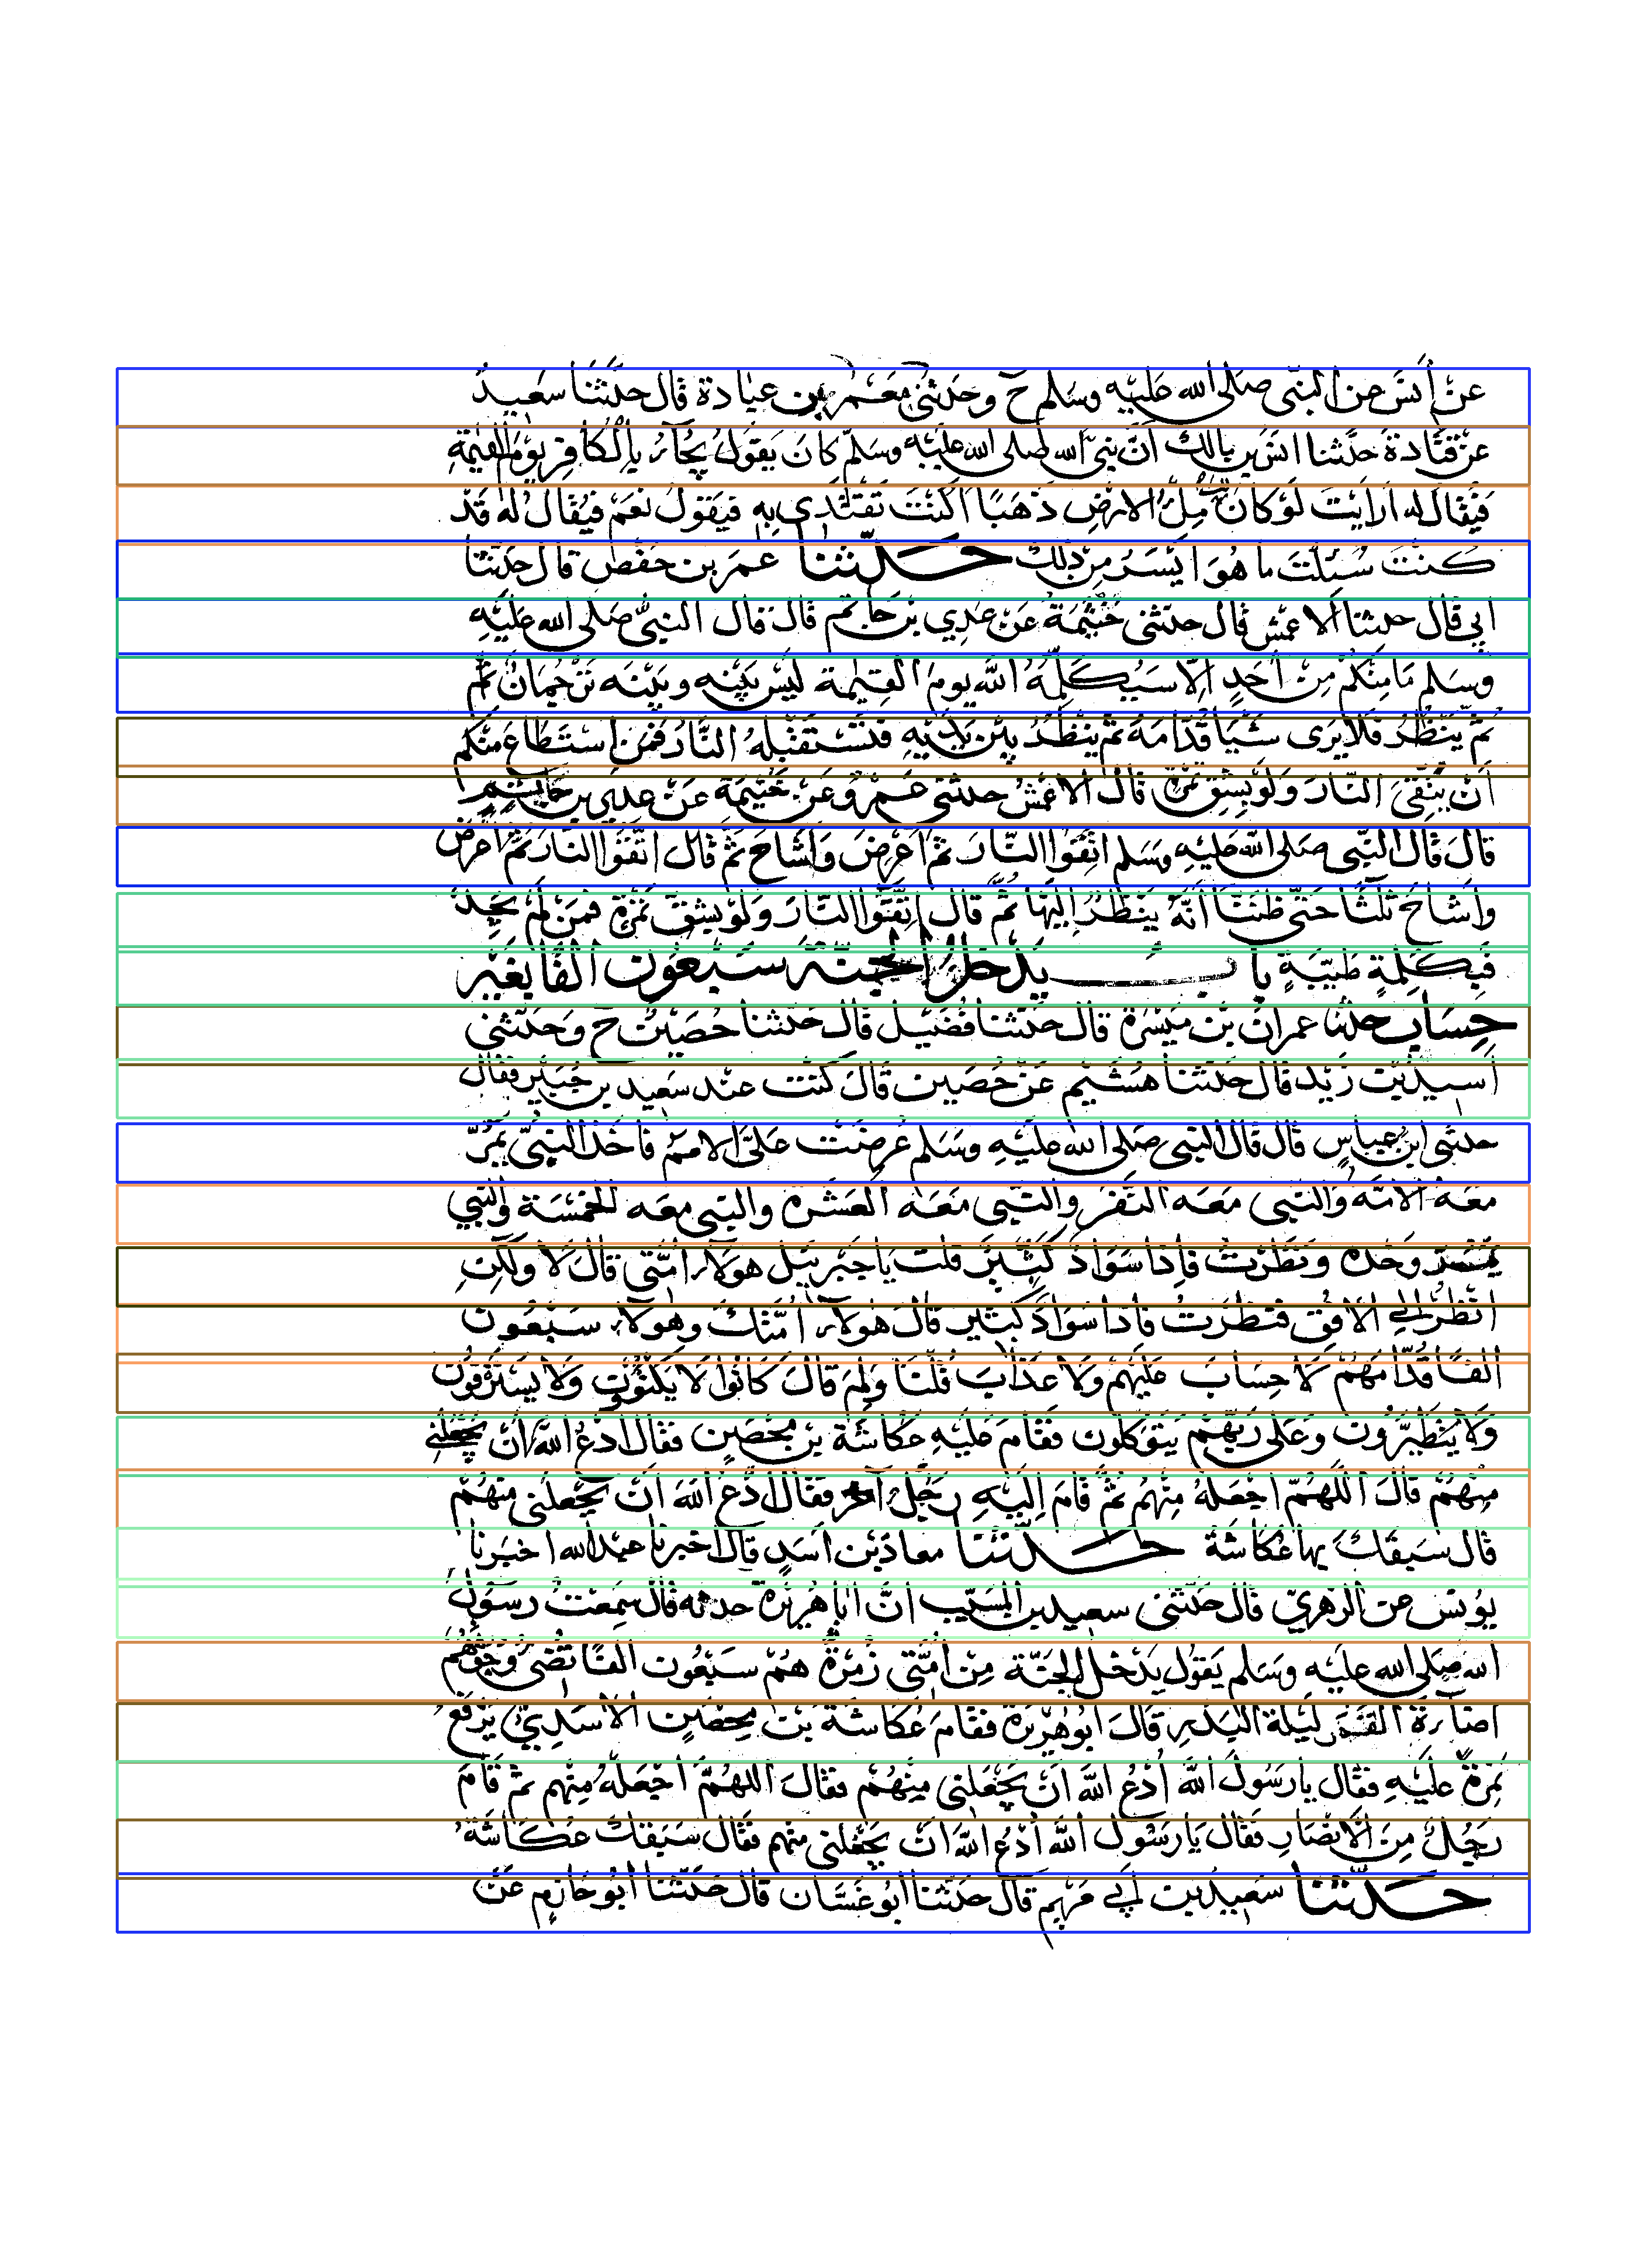 عَنْ أَنَسٍ عن النبي صلى الله عليه وسلم ح وحدثني مَعْمَر بن عبادة قال حدثنا سَعِيدٌ
عَنْ قتادة حَدَّثنا انَس بن مالك انَّ نبيَّ الله صلى الله عليه وسلّم كانَ يَقولُ يُجَآءُ بِالْكافِرِ يَوْمَ القِيٰمَةِ
فَيُقَال له ارأَيْتَ لَوْ كانَ مِلْءُ الارْضِ ذَهَبًا اكُنْتَ تَفْتَدِي بِهِ فيَقولُ نَعَمْ فيُقالُ لهُ قَدْ
كُنْتَ سُئِلْتَ ما هُوَ ايْسَرُ مِنْ ذلِكَ حَدّثنا عمَر بن حَفْص قال حدَّثنا
ابي قال حدثنا الاعمش قال حدثني خَيْثَمَةُ عَنْ عَدِي بن حاتم قالَ قالَ النبيُّ صَلى الله عَليْهِ
وسلم مَا مِنكُمْ مِنْ أحَدٍ الّا سَيُكَلِّمُهُ اللهُ يومَ القِيٰمة ليْسَ بَيْنه وبَيْنَه تَرْجُمانٌ ثُمَّ
ثمَّ يَنْظُرُ فَلا يَرَى شَيْئًا قُدّامَهُ ثمَّ يَنْظُرُ بيْنَ يَدَيْهِ فَتَسْتَقْبِلهُ النَّارُ فَمَنِ اسْتَطَاعَ مِنْكم
أَنْ يَتَّقِيَ النَّارَ وَلَوْ بِشِقِّ تَمْرَةٍ قالَ الاعمشُ حدثني عَمْرٌو عَنْ خَيْثَمَةَ عَنْ عدِي بن حَاتِمٍ
قالَ قالَ النبي صلى الله عليه وسلم اتَّقوا النّارَ ثمَّ اعْرَضَ وَأشاحَ ثمَّ قالَ اتَّقوا النارَ ثمَّ اعرَضَ
وأشَاحَ ثلثًا حَتّى ظَنَنَّا أنَّهُ يَنْظُرُ إليْها ثمَّ قال اتَّقوا النَّارَ وَلَوْ بِشِقِّ تَمْرَةٍ فمَنْ لَمْ يَجِدْ
فَبِكَلِمَةٍ طَيّبَةٍ باب يَدْخلُ الجنّة سَبْعُون الفًا بغَيْر
حِسَاب حدثنا عمرانُ بْنُ مَيْسَرَة قال حَدّثنا فُضَيْل قال حَدثنا حُصَيْن ح وَحَدّثني
اسيد بن زَيْد قال حدّثنا هُشَيْم عَنْ حُصَين قَالَ كنْت عند سَعيد بن جُبَيْر فقال
حدثني ابن عباسٍ قال قال النبي صلى الله عليه وسَلم عُرِضَتْ عَلَيَّ الامَمُ فاخَذ النبيُّ يَمُرّ
مَعَهُ الامّة وَالنبي مَعَه النّفَرُ والنّبي مَعَهُ العَشَرة والنبي معَه الخمْسَة والنبي
يَمُرّ وَحْدَه ونَظَرْتُ فإذا سَوَادٌ كَثِيْر قلت يا جِبْريل هولاء امَّتي قال لا ولكنِ
انظُرْ الي الافُق فنظَرْتُ فاذا سَوادٌ كثير قالَ هَولاء امّتُكَ وهَولاء سَبْعُون
الفًا قُدّامَهُمْ لا حِسَابَ عَليْهِمْ ولا عَذابَ قُلْتُ وَلِمَ قالَ كَانُوا لا يَكْتَوُون ولا يَسْتَرْقُون
وَلَا يتَطَيَّرُون وَعَلى رَبِّهِمْ يَتَوَكلون فقَامَ عَليْهِ عكاشَةُ بن مِحْصَنٍ فقال ادعُ اللهَ أنْ يَجْعَلني
مِنْهُمْ قالَ اللّهُمّ اجعَلهُ مِنْهُمْ ثُمَّ قامَ إلَيْهِ رَجُلٌ آخر فقال ادْعُ اللهَ انْ يَجْعلني مِنْهُمْ
قالَ سبَقَكَ بها عُكاشَةُ حَدّثنا معاذ بن أسَدٍ قال اخبرنا عبد الله اخبَرنا
يُونُس عن الزهريِّ قال حَدّثني سعيد بن المسَيّب انَّ ابا هُرَيْرَة حدثه قال سَمِعْتُ رسُولَ
الله صَلى الله عليه وسَلم يَقولُ يَدْخل الجنّة مِنْ امَّتي زُمْرَةٌ هُمْ سَبْعُون الفًا تُضِي وُجوهُهُمْ
اضاءة القمَر لَيْلة البَدْرِ قالَ ابوهُرَيْرَة فقَامَ عُكاشَةُ بن مِحْصَنٍ الاسَدِيُّ يَرْفَعُ
نَمِرَةً عليْهِ فقال يا رَسُولَ اللهِ أدْعُ اللهَ انْ يَجْعَلني مِنْهُمْ فقالَ اللهُمَّ اجْعَلْهُ مِنْهم ثمَّ قامَ
رَجُلٌ مِنَ الانصَارِ فَقالَ يَا رَسُولَ اللهِ أدْعُ اللهَ انْ يَجْعَلني منْهم فقال سَبَقَك عُكاشَةُ
حَدّثنا سعيد بن ابي مَرْيم قال حدّثنا ابُو غَسَّان قال حَدّثنا ابُو حَازِمٍ عَنْ